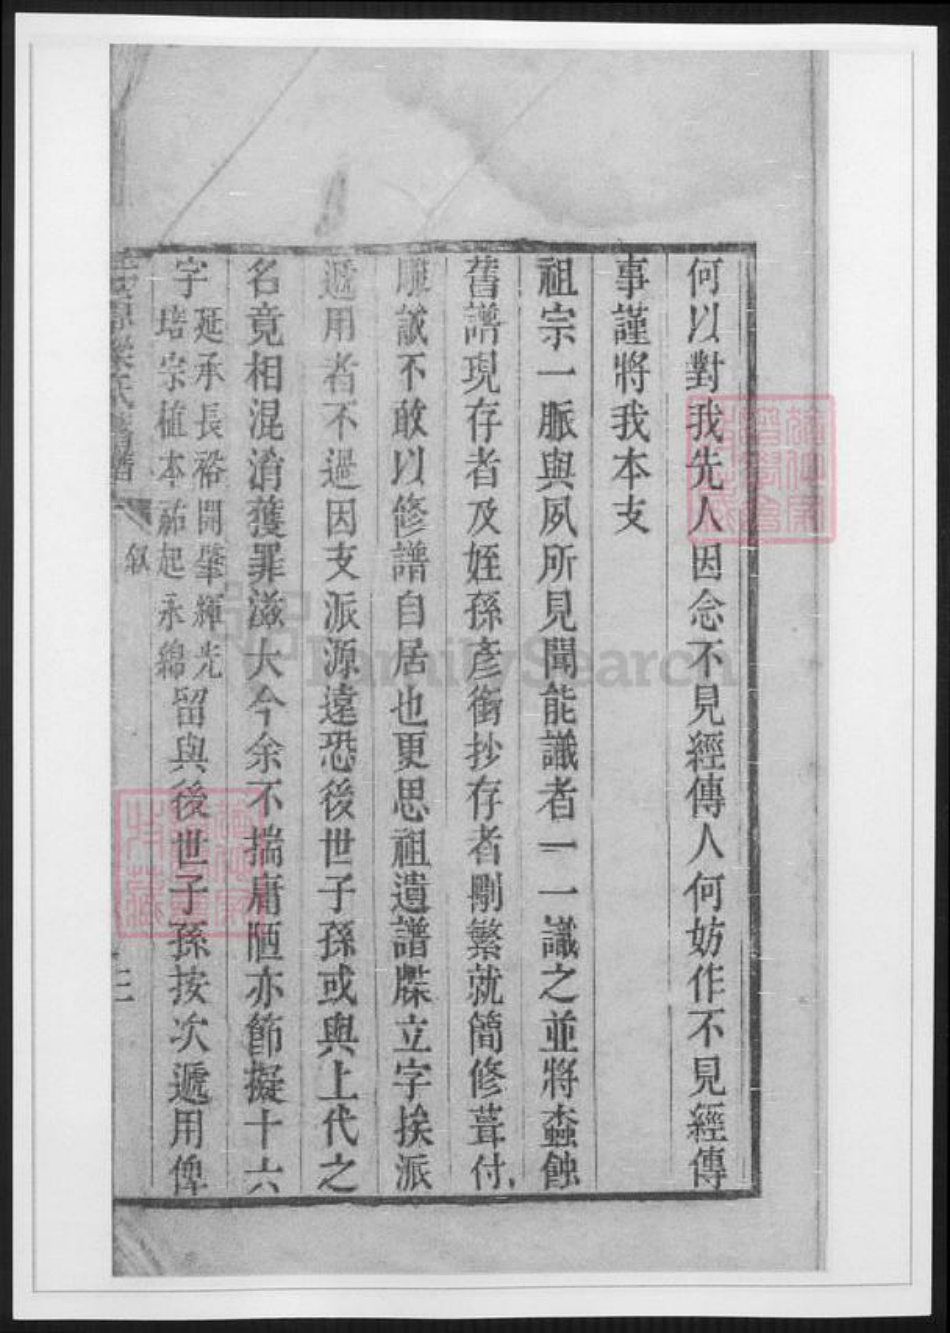 何以對我先人因念不見經傳人何妨作不見經傳
事謹將我本支
祖宗一脈與夙所見聞能識者一一識之並將蠧蝕
舊譜現存者及姪孫彥銜抄存者刪繁就簡修葺付
雕誠不敢以修譜自居也更思祖遺譜牒立字挨派
遞用者不過因支派源遠恐後世子孫或與上代之
名竟相混淆獲罪滋大今余不揣庸陋亦節擬十六
字
延承長裕開肇輝光
培宗植本祐起永綿
留與後世子孫按次遞用俾
氏譜
叙
三
FamilySearch